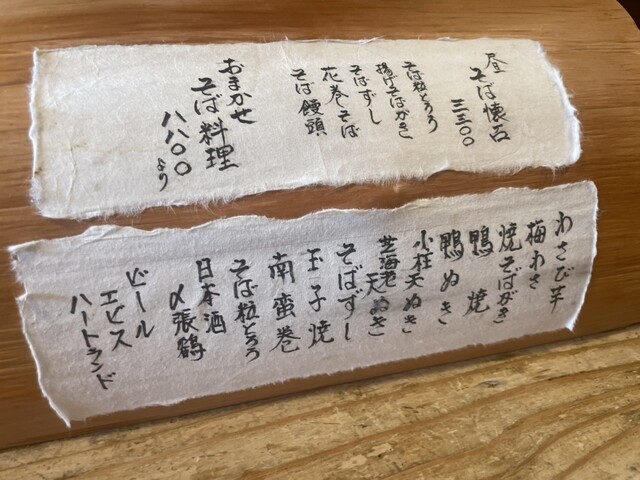 昼
そば懐石
三三〇〇
そば粒とろろ
揚げそばがき
そばずし
花巻そば
そば饅頭
おまかせ
そば料理
八八〇〇
より
わさび芋
梅わさ
焼そばがき
鴨焼
鴨ぬき
小柱天ぬき
芝海老天ぬき
そばずし
玉子焼
南蛮巻
そば粒とろろ
日本酒
〆張鶴
ビール
エビス
ハートランド